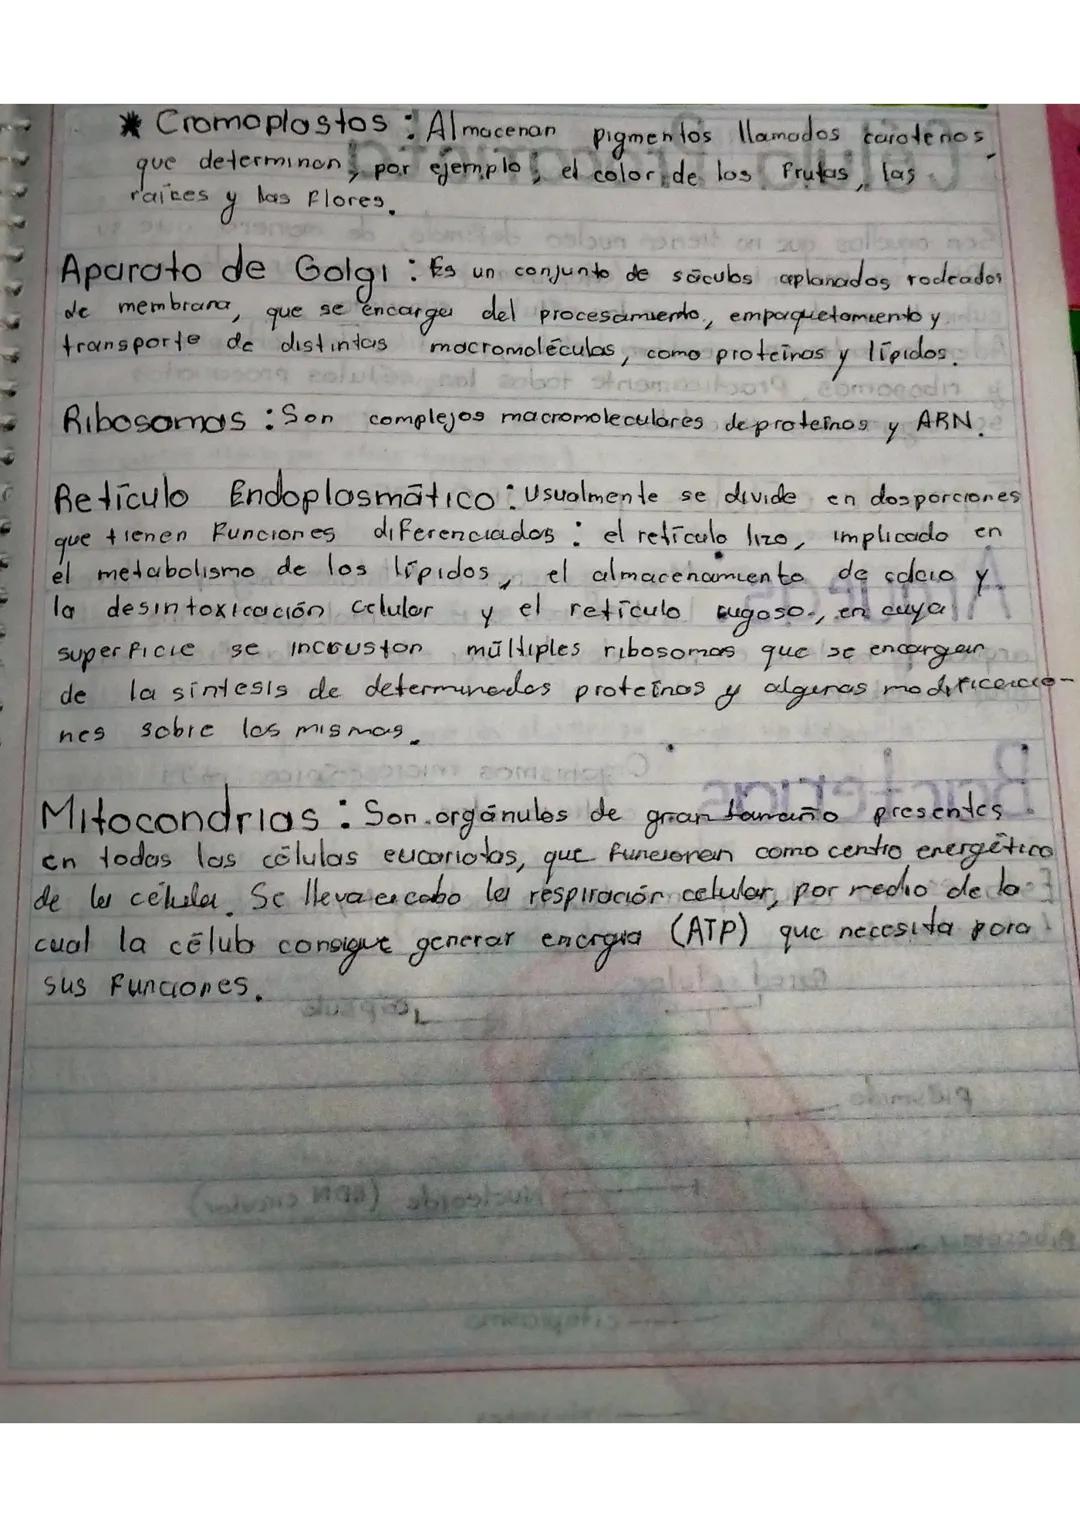 * Cromoplastos : Almacenan pigmentos llamados carotenos,
que determinan, por ejemplo, el color de los frutas, las
raíces y las flores.
Aparato de Golgi : Es un conjunto de sáculos aplanados rodeados
de membrana, que se encarga del procesamiento, empaquetamiento y
transporte de distintas macromoléculas, como proteínas y lípidos.
Ribosomas : Son complejos macromoleculares de proteínas y ARN.
Retículo Endoplasmático : Usualmente se divide en dos porciones
que tienen funciones diferenciadas : el retículo lizo, implicado en
el metabolismo de los lípidos, el almacenamiento de calcio y
la desintoxicación celular y el retículo rugoso, en cuya
superficie se incrustan múltiples ribosomas que se encargan
de la síntesis de determinadas proteínas y algunas modificacio-
nes sobre las mismas.
Mitocondrias : Son orgánulos de gran tamaño presentes
en todas las células eucariotas, que funcionan como centro energético
de la célula. Se lleva a cabo la respiración celular, por medio de la
cual la célula consigue generar energía (ATP) que necesita para
sus funciones.